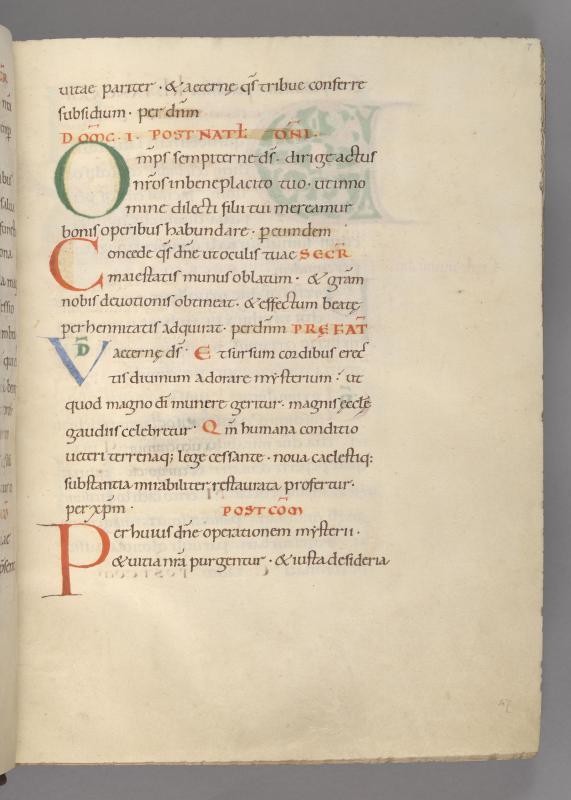 uitae pariter · & aeternę q̄s tribue conferre
subsidium · per dnm
DOM̄C · I · POST NAT̄L DN̄I ·
Omps sempiterne ds̄ · dirige actus
nr̄os inbeneplacito tuo · utinno
mine dilecti filii tui mereamur
bonis operibus habundare · p eundem
Concede q̄s dn̄e utoculis tuae SECR̄
maiestatis munus oblatum · & grām
nobis deuotionis obtineat · & effectum beatę
perhennitatis adquirat · perdn̄m PRĘFAT̄
VD̄ Aeternę ds̄ · Et sursum cordibus erec
tis diuinum adorare mysterium · ut
quod magno dī munere geritur · magnis ęcclę
gaudiis celebretur · Qm̄ humana conditio
ueteri terrenaq; lege cessante · noua caelestiq;
substantia mirabiliter restaurata profertur ·
per xpm̄ · POSTCOM̄
Per huius dn̄e operationem mysterii ·
& uitia nr̄a purgentur · & iusta desideria